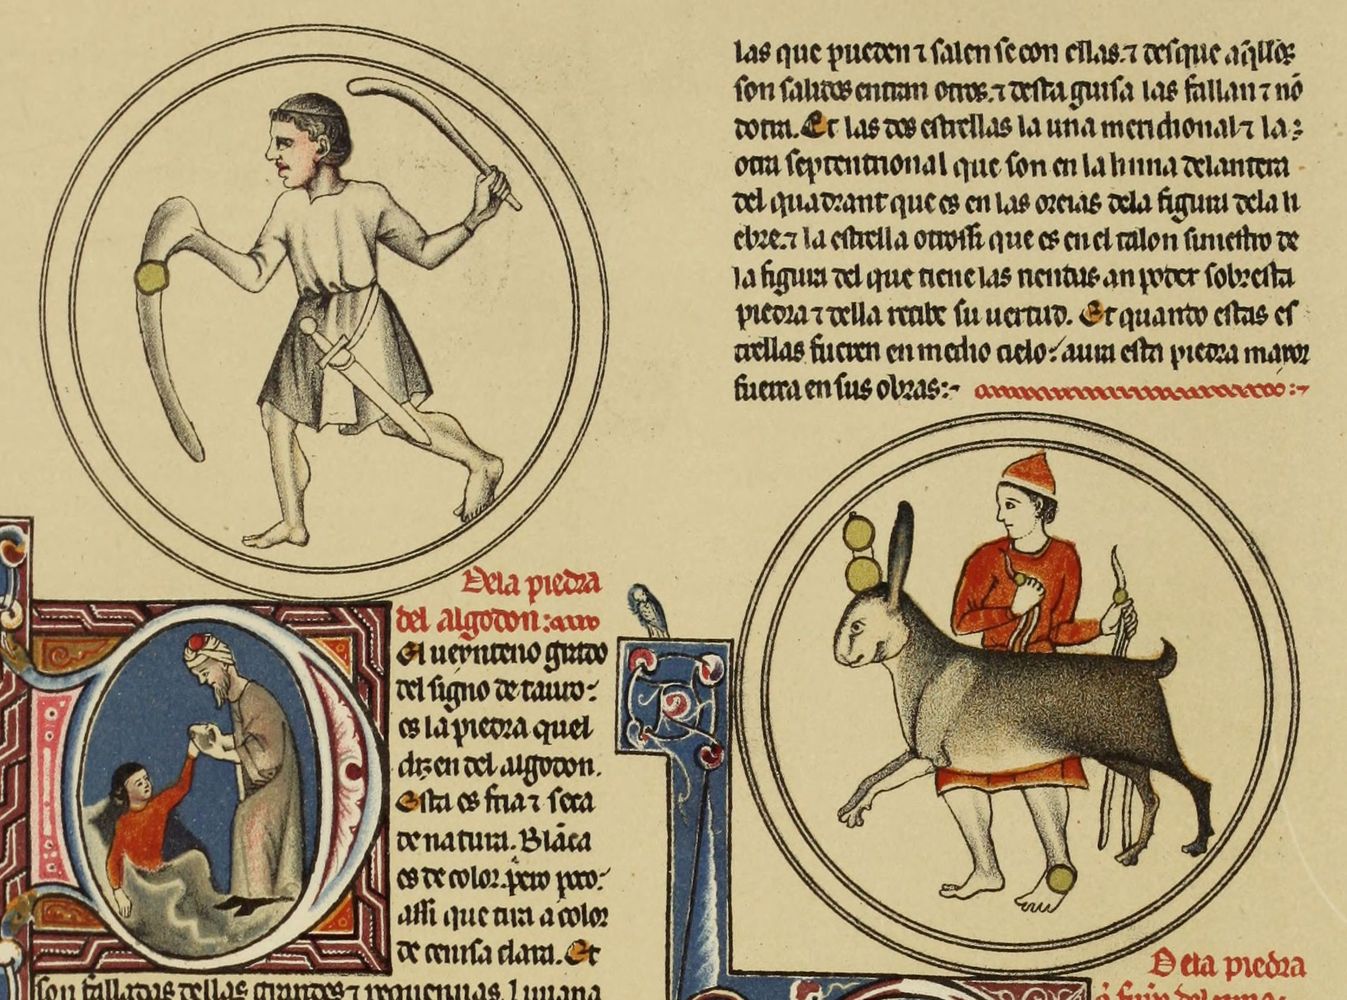 Dela piedra
del algodon:
El uernteno grado
del signo de tauro:
es la piedra quel
dizen del algodon.
Esta es fria ⁊ seca
de natura. Blāca
es de color. pero poco:
assi que tira a color
de cenisa clara. Et
son falladas dellas grandes ⁊ pequennas.
las que pueden ⁊ salen se con ellas. ⁊ desque aq̄llos
son salidos entran otros. ⁊ desta guisa las fallan ⁊ nō
dotra. Et las dos estrellas la una meridional ⁊ la:
otra septentrional que son en la linna delantera
del quadrant que es en las oreias dela figura dela li
ebre. ⁊ la estrella otrossi que es en el talon siniestro de
la figura del que tiene las riendas an poder sobresta
piedra ⁊ della recibe su uertud. Et quando estas es
trellas fueren en medio cielo: aura esta piedra mayor
fuerça en sus obras:
Dela piedra